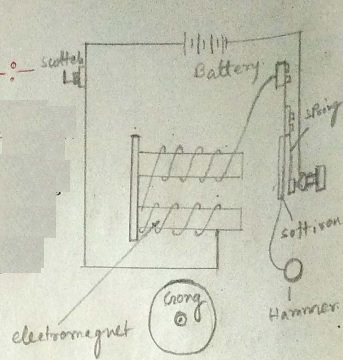 scotteh
Battery
spring
soft iron
Gong
Hammer
electromagnet